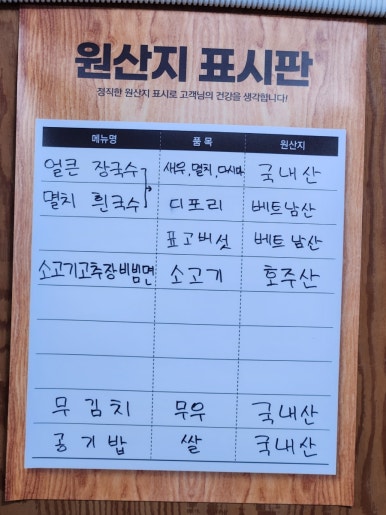 원산지 표시판
정직한 원산지 표시로 고객님의 건강을 생각합니다!
메뉴명 품목 원산지
얼큰 장국수 새우, 멸치, 다시마 국내산
멸치 흰국수 디포리 베트남산
표고버섯 베트남산
소고기고추장비빔면 소고기 호주산
무김치 무우 국내산
공기밥 쌀 국내산